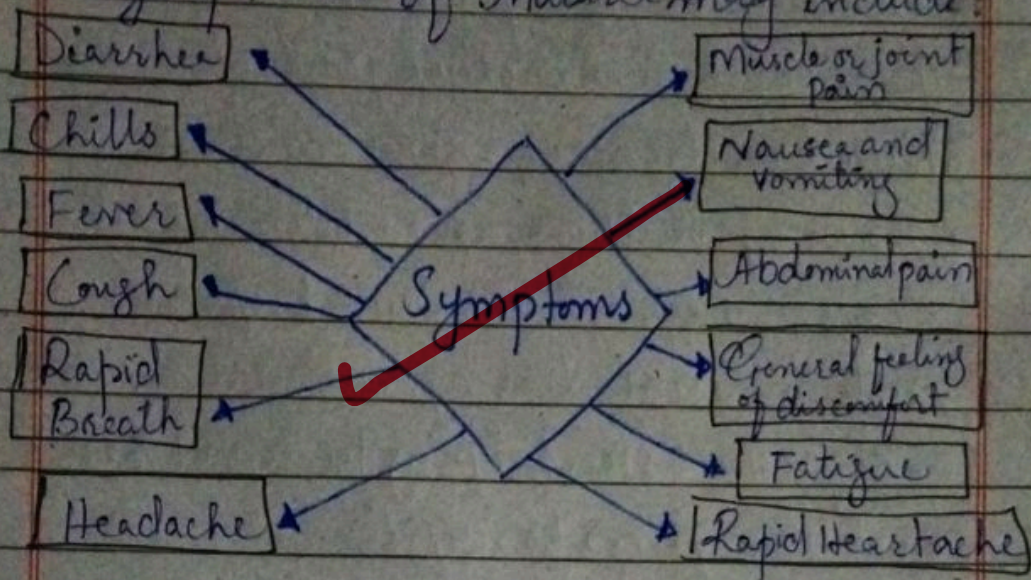 of
may include:
Diarrhea
Chills
Fever
Cough
Rapid
Breath
Headache
Symptoms
Muscle or joint
pain
Nausea and
vomiting
Abdominal pain
General feeling
of discomfort
Fatigue
Rapid Heartache